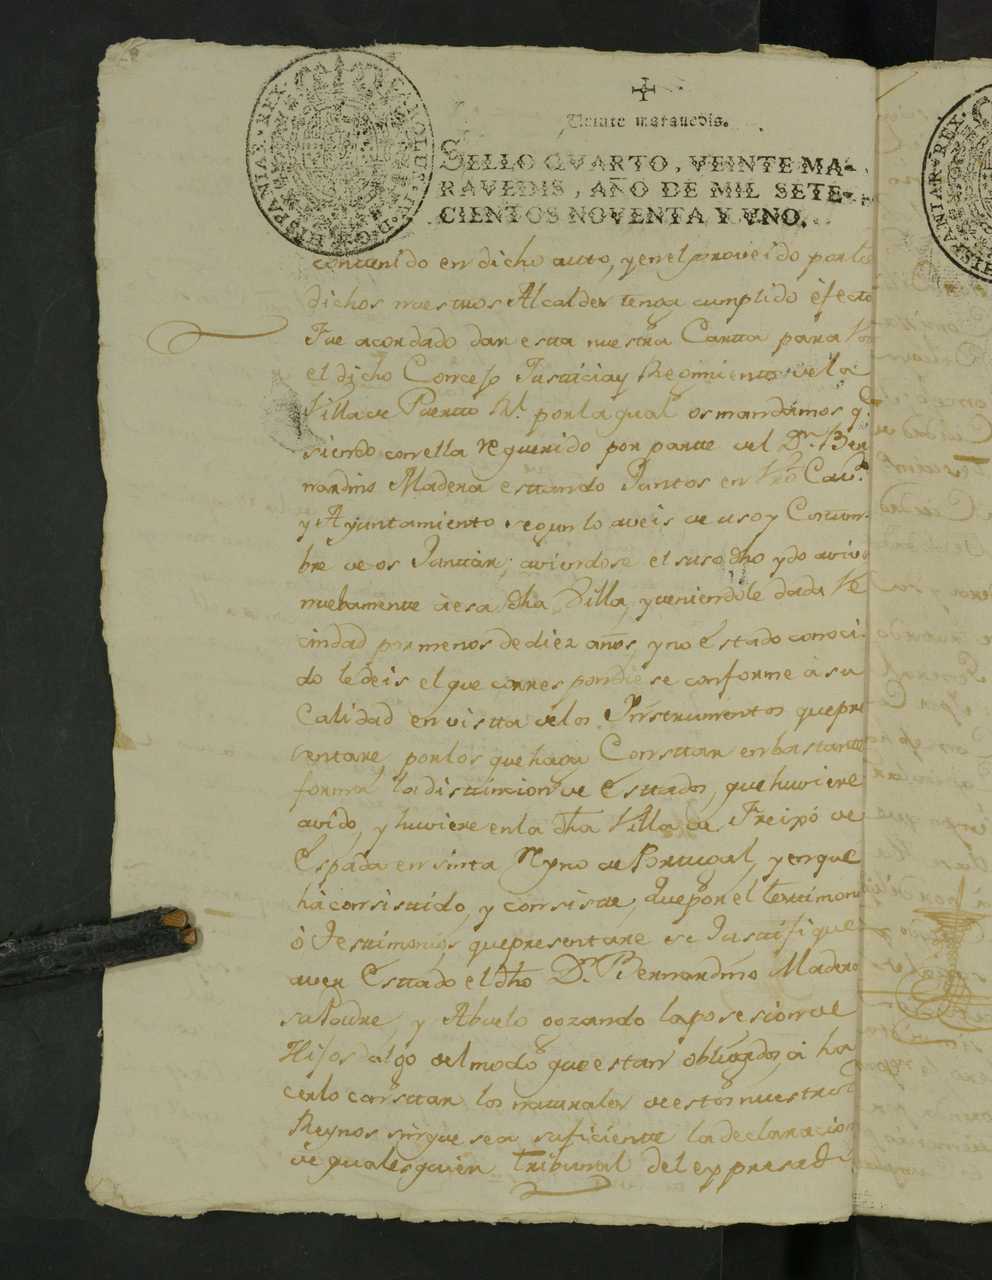 ✢
Veinte maravedis.
SELLO QVARTO, VEINTE MA-
RAVEDIS, AÑO DE MIL SETE-
CIENTOS NOVENTA Y VNO.
CAROLUS IV D G HISPANIAR REX
contenido en dicho auto, y en el proveido por los
dichos nuestros Alcaldes tenga cumplido efecto
Fue acordado dar esta nuestra Cartta para Vos
el dicho Concejo Justicia y Regimiento de la
Villa de Puertto Rl. por la qual os mandamos q.e
siendo con ella requerido por partte del Dn. Ber
nardino Madera estando Juntos en Vro Cav.do
y Ayuntamiento segun lo aveis de uso y Costum-
bre de os Juntar; aviendose el suso dho ydo a vivir
nuebamente à esa dha Villa, y teniendole dada Ve
cindad por menos de diez años, y no Estado conoci
do le deis el que correspondiese conforme à su
Calidad en vistta de los Ynstrumentos que pre
sentare, por los que haga Consttar en bastante
forma la distincion de Esttados, que huviere
avido, y huviere en la dha Villa de Freixo de
Espada en sinta Reyno de Portugal, y en que
ha consistido, y consiste, que por el testimonio
ò Testimonios, que presentare se Justifique
aver Esttado el dho Dn. Bernardino Madera
su Padre, y Abuelo gozando la posesion de
Hijos dalgo del modo que estan obligados à ha
cerlo consttar los naturales de estos nuestros
Reynos sin que sea suficiente la declaracion
de qualesquier Tribunal del expresado